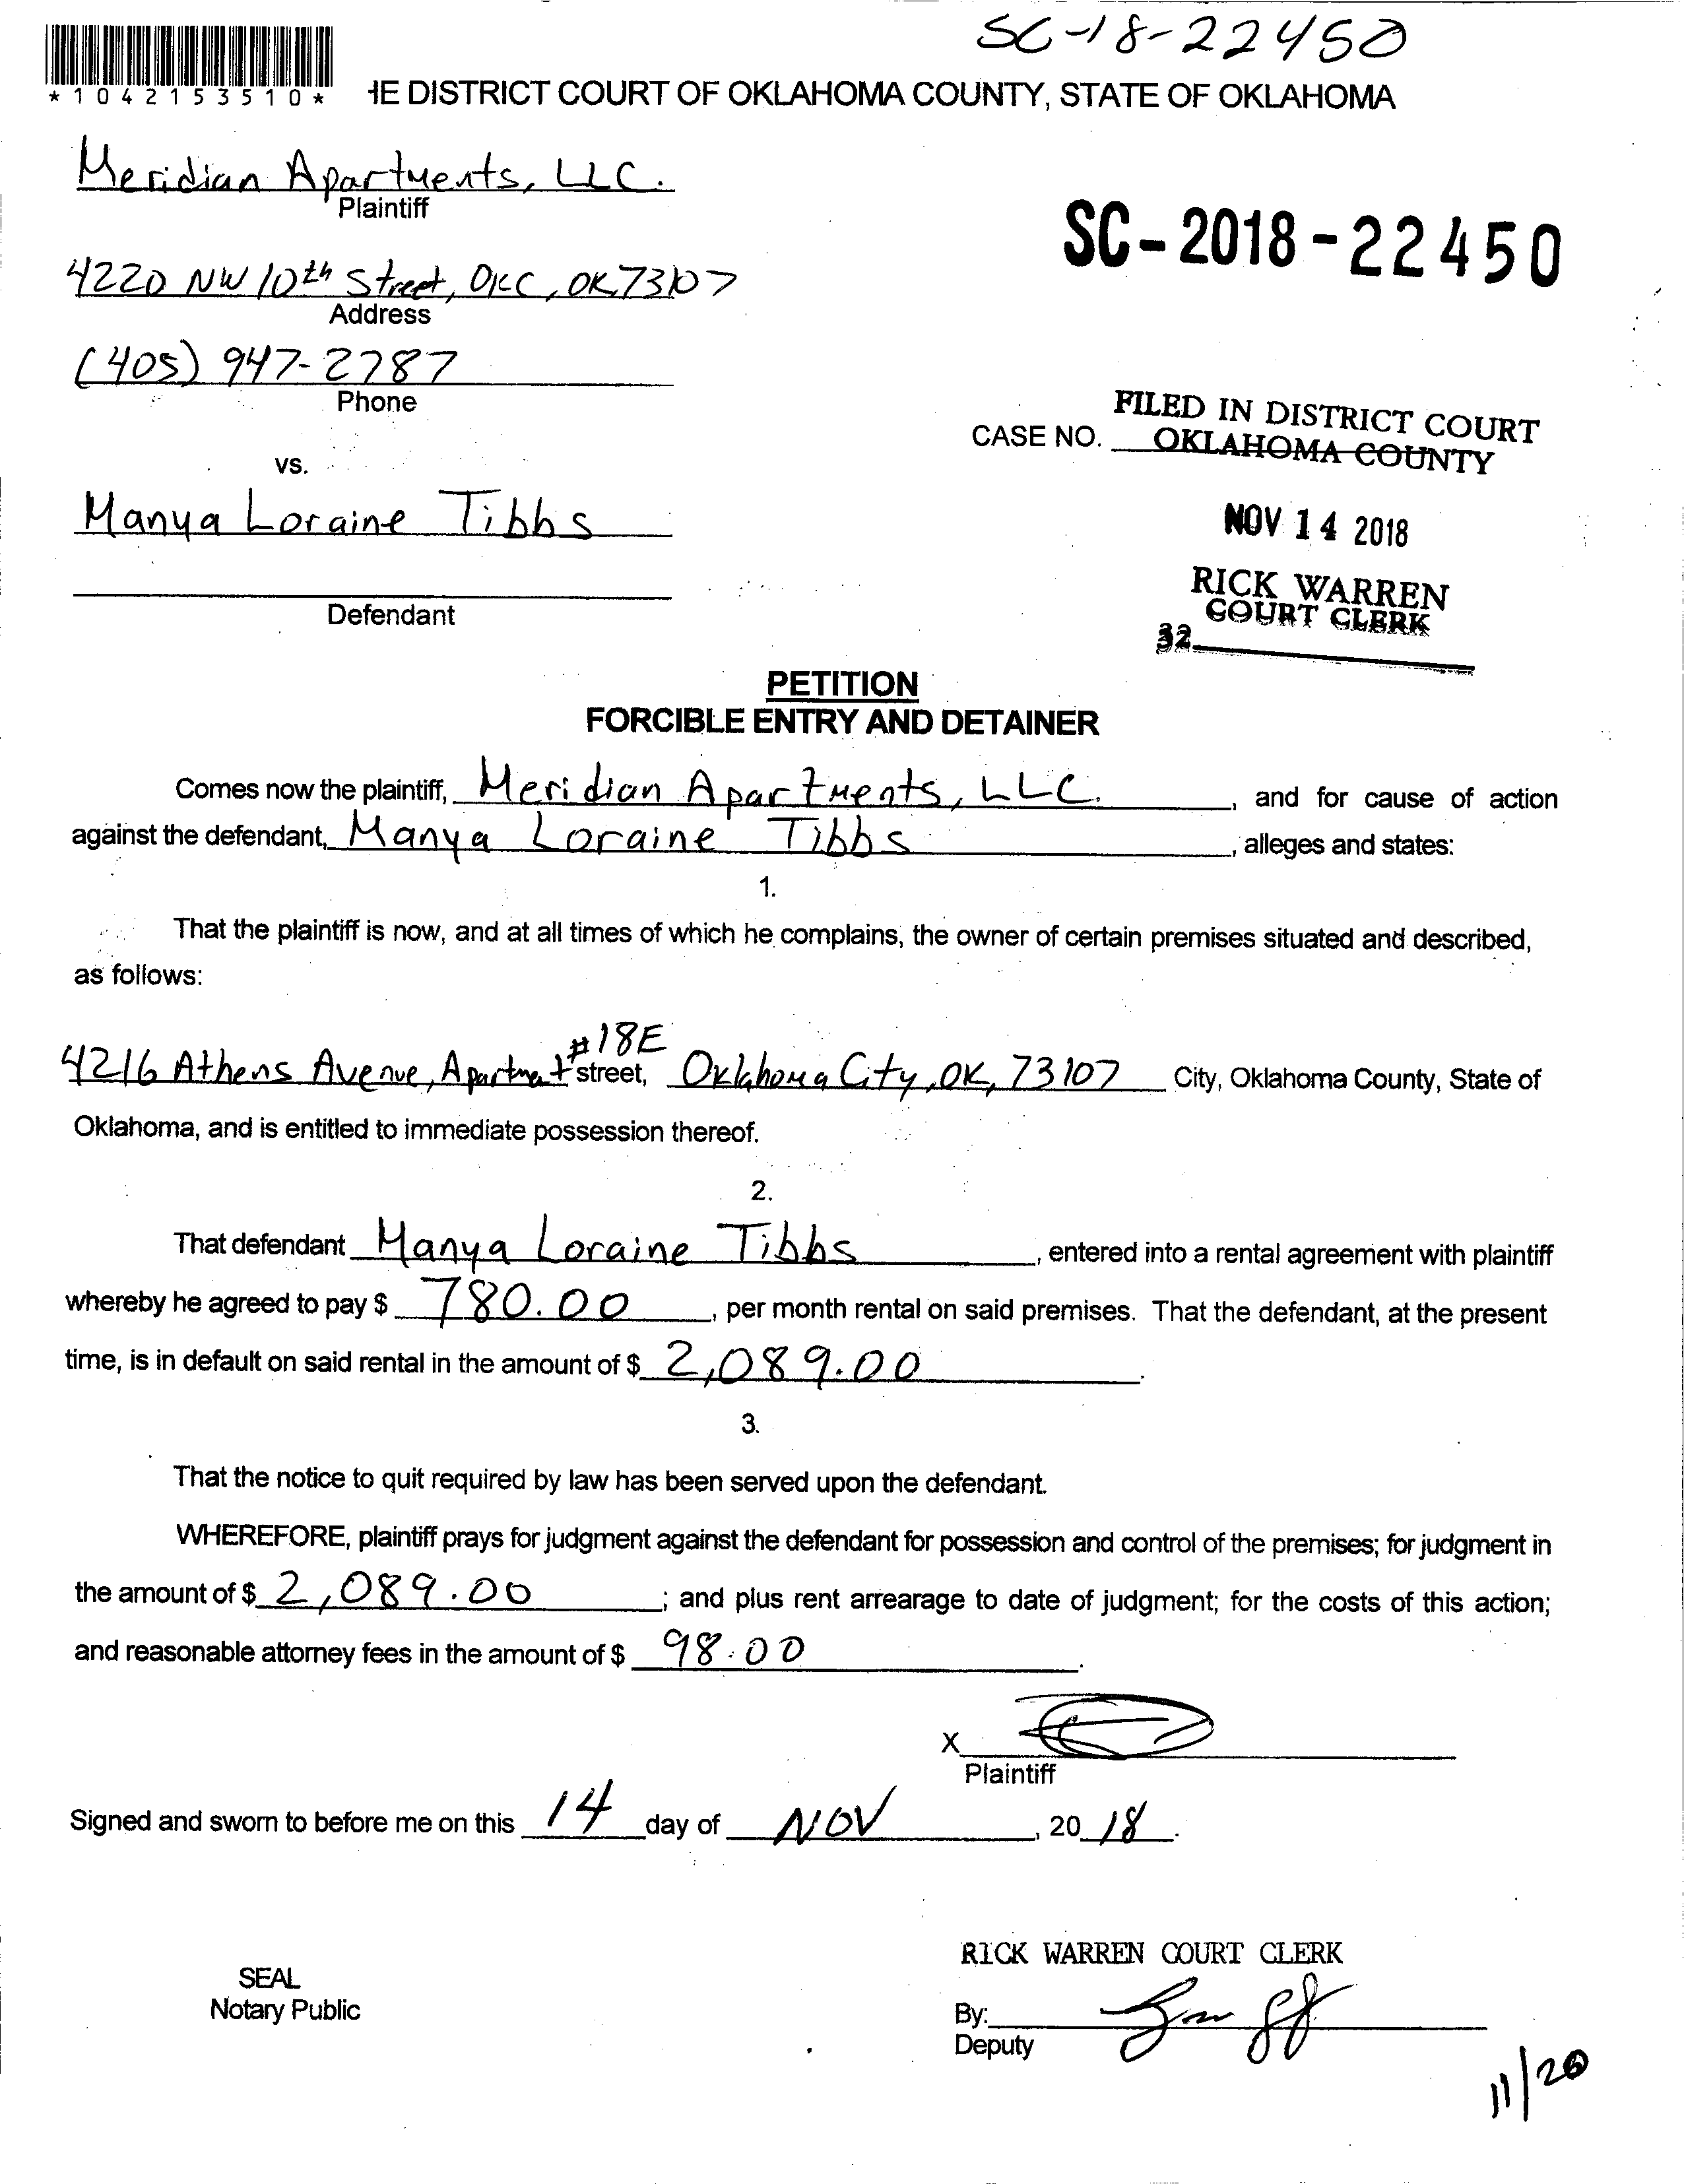 SC-18-22450
*1042153510*
HE DISTRICT COURT OF OKLAHOMA COUNTY, STATE OF OKLAHOMA
Meridian Apartments, LLC.
Plaintiff
SC-2018-22450
4220 NW 10th Street, OKC, OK 73107
Address
(405) 947-2787
Phone
FILED IN DISTRICT COURT
CASE NO. OKLAHOMA COUNTY
vs.
Manya Loraine Tibbs
NOV 14 2018
RICK WARREN
COURT CLERK
Defendant
32
PETITION
FORCIBLE ENTRY AND DETAINER
Comes now the plaintiff, Meridian Apartments, LLC. , and for cause of action
against the defendant, Manya Loraine Tibbs , alleges and states:
1.
That the plaintiff is now, and at all times of which he complains, the owner of certain premises situated and described,
as follows:
#18E
4216 Athens Avenue, Apartment street, Oklahoma City, OK, 73107 City, Oklahoma County, State of
Oklahoma, and is entitled to immediate possession thereof.
2.
That defendant Manya Loraine Tibbs , entered into a rental agreement with plaintiff
whereby he agreed to pay $ 780.00 , per month rental on said premises. That the defendant, at the present
time, is in default on said rental in the amount of $ 2,089.00 .
3.
That the notice to quit required by law has been served upon the defendant.
WHEREFORE, plaintiff prays for judgment against the defendant for possession and control of the premises; for judgment in
the amount of $ 2,089.00 ; and plus rent arrearage to date of judgment; for the costs of this action;
and reasonable attorney fees in the amount of $ 98.00 .
X
Plaintiff
Signed and sworn to before me on this 14 day of NOV , 20 18 .
RICK WARREN COURT CLERK
SEAL
Notary Public
By:
Deputy
11/26